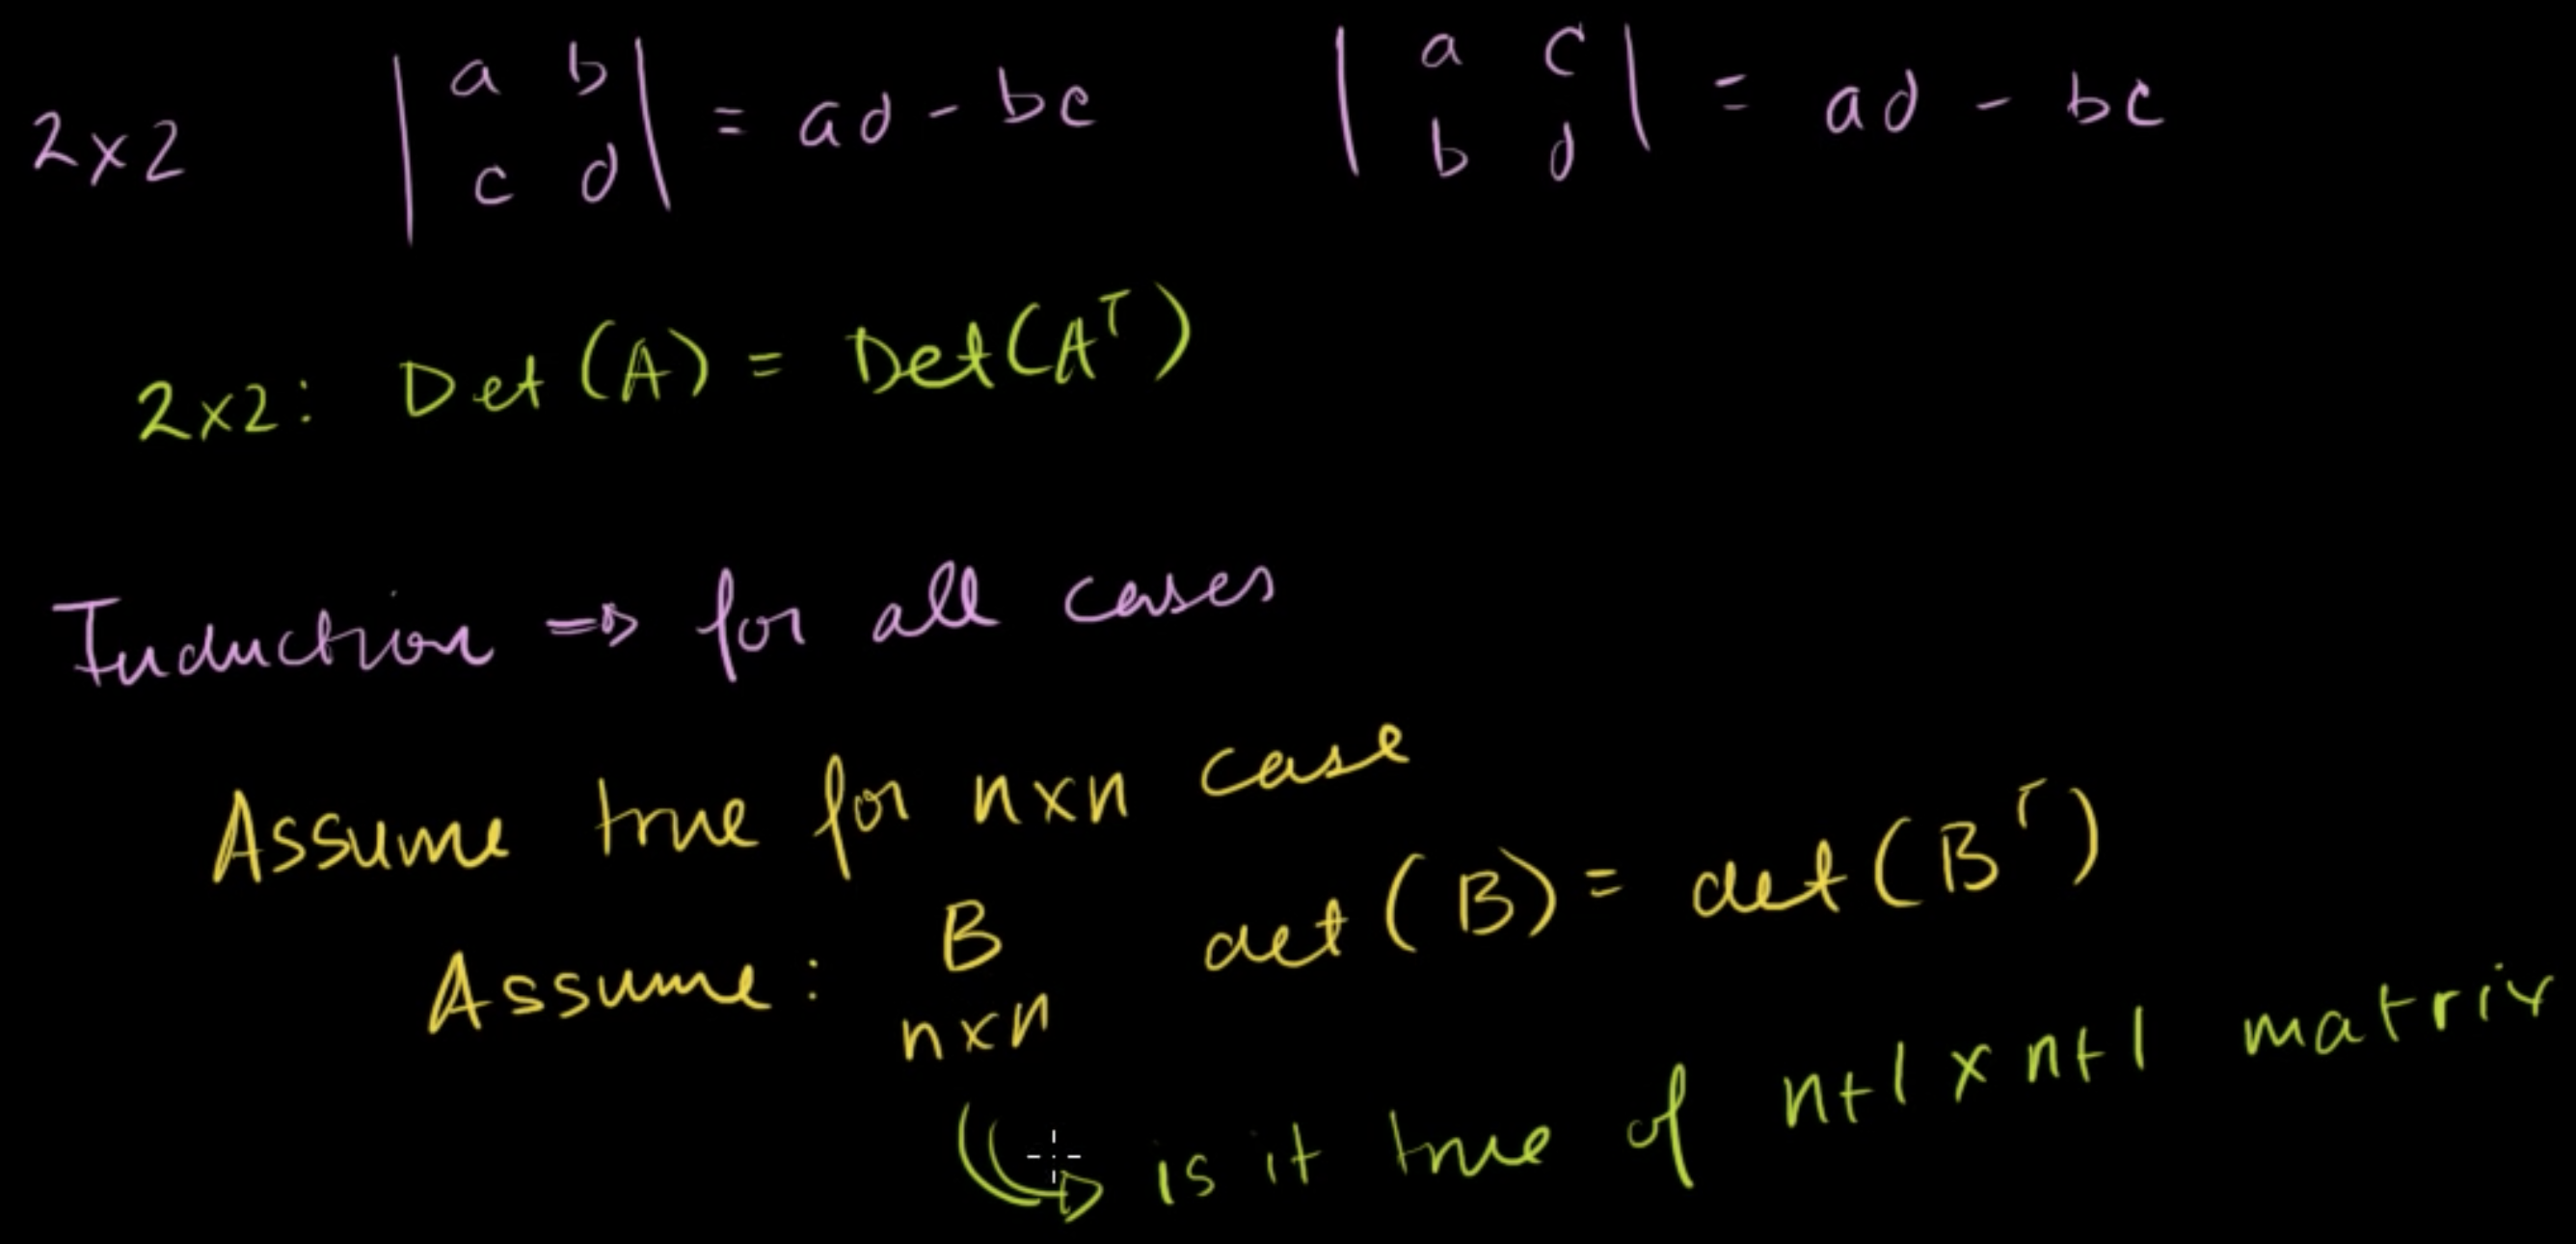 2x2 | a b | = ad - bc | a c | = ad - bc
| c d | | b d |
2x2: Det (A) = Det(Aᵀ)
Induction ⇒ for all cases
Assume true for nxn case
Assume: B det (B) = det (Bᵀ)
nxn
is it true of n+1 x n+1 matrix